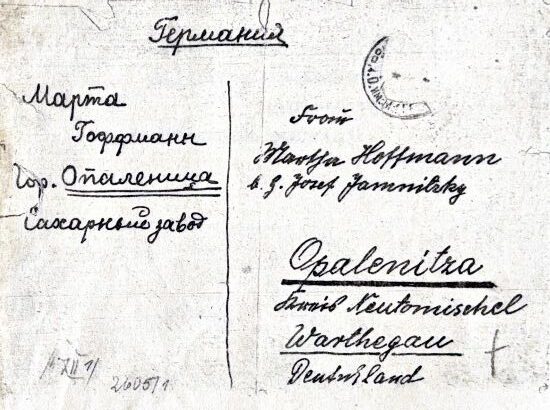 Германия
Марта
Гоффманн
Гор. Опаленица
Сахарный завод
Frau
Martha Hoffmann
b. H. Josef Jamnitzky
Opalenitza
Kreis Neutomischel
Warthegau
Deutschland
2605/1